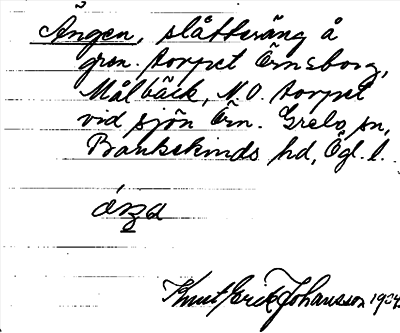 Ängen, slåtteräng å
gren. torpet Örnsborg,
Målbäck, N.O. torpet
vid sjön Örn. Grebo sn,
Bankekinds hd, Ögl. l.
Knut Erik Johansson